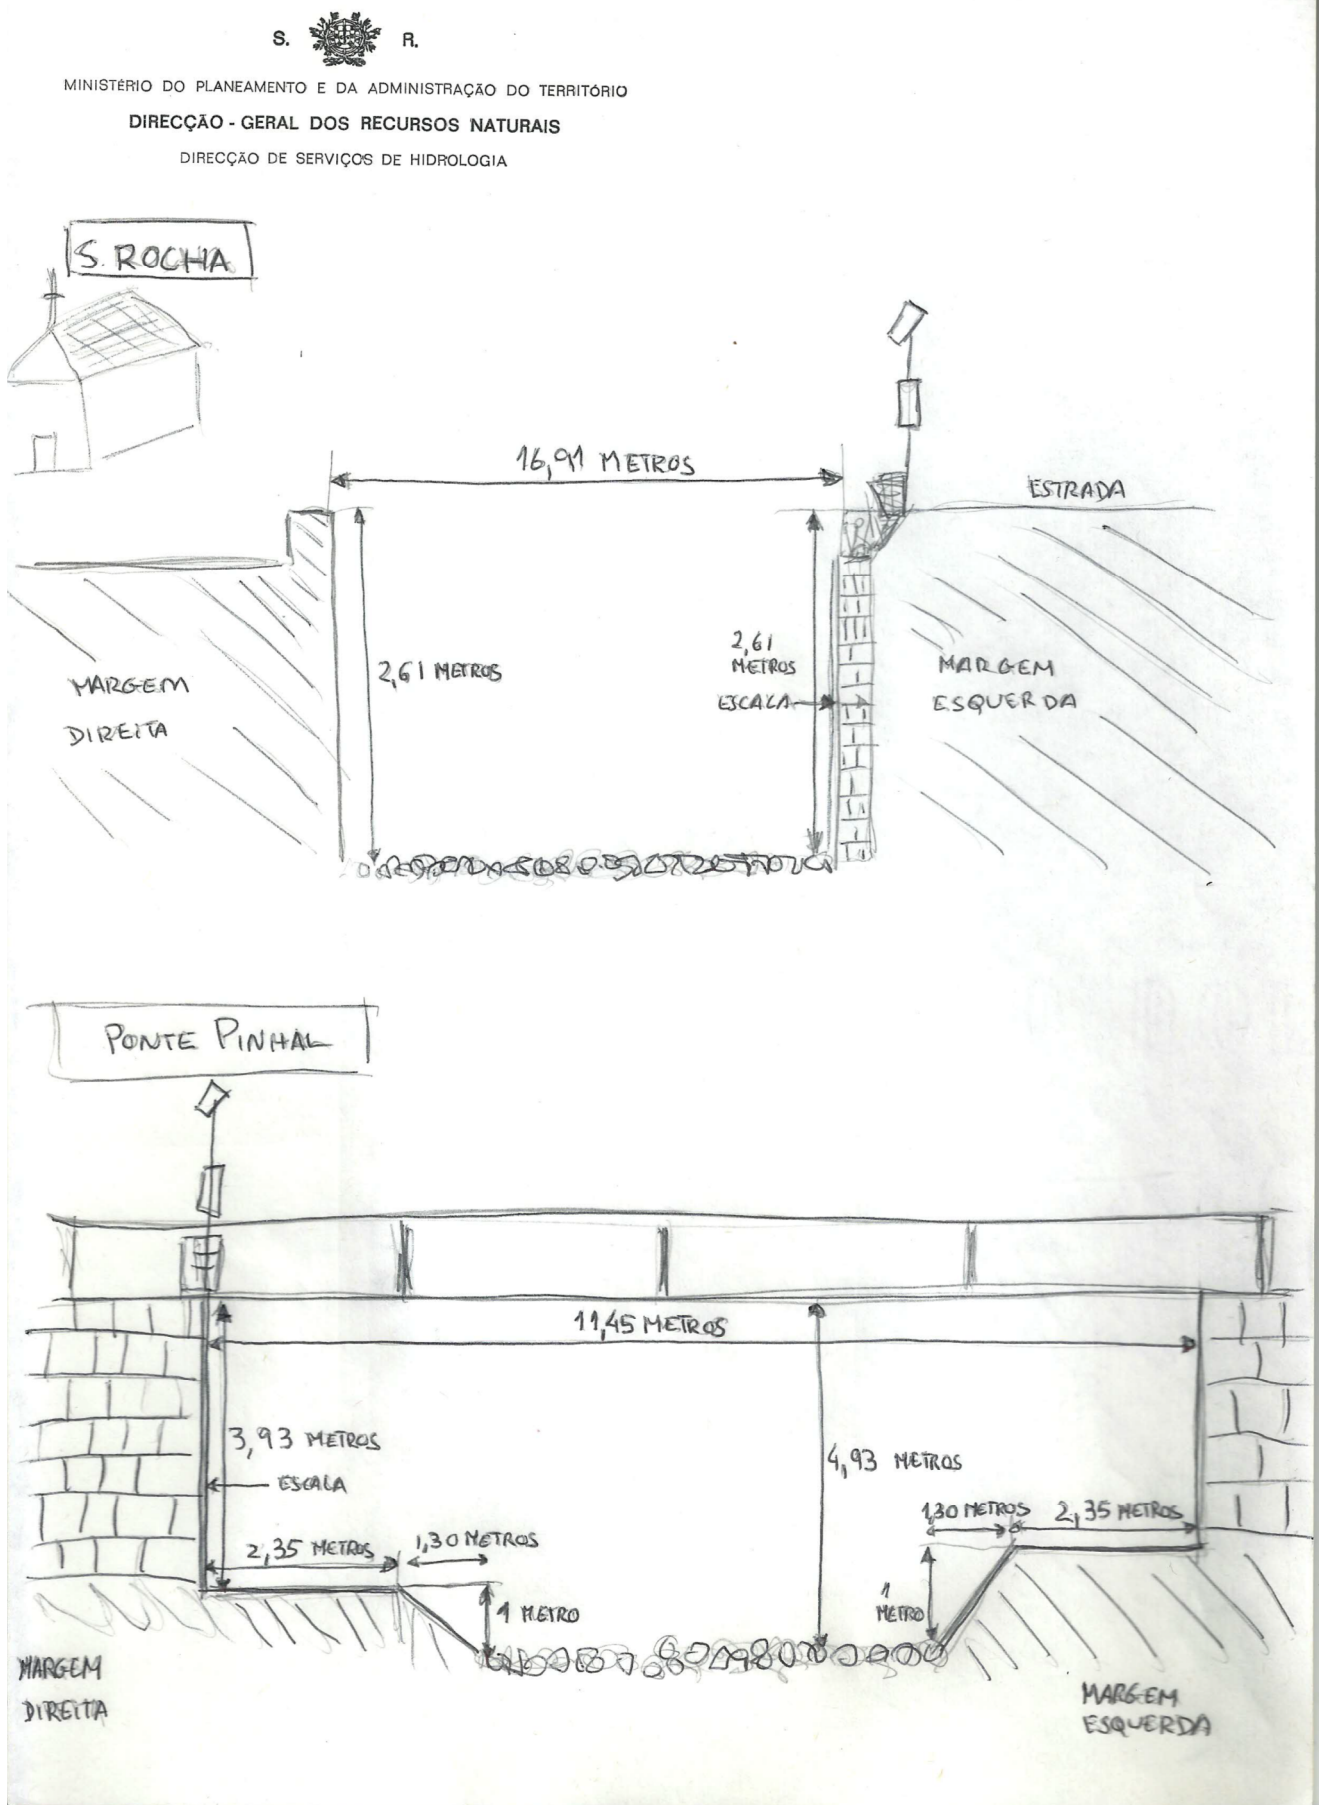 S. R.
MINISTÉRIO DO PLANEAMENTO E DA ADMINISTRAÇÃO DO TERRITÓRIO
DIRECÇÃO - GERAL DOS RECURSOS NATURAIS
DIRECÇÃO DE SERVIÇOS DE HIDROLOGIA
S. ROCHA
16,91 METROS
ESTRADA
2,61 METROS
2,61
METROS
ESCALA
MARGEM
DIREITA
MARGEM
ESQUERDA
PONTE PINHAL
11,45 METROS
3,93 METROS
ESCALA
4,93 METROS
2,35 METROS
1,30 METROS
1 METRO
1,30 METROS
2,35 METROS
1
METRO
MARGEM
DIREITA
MARGEM
ESQUERDA